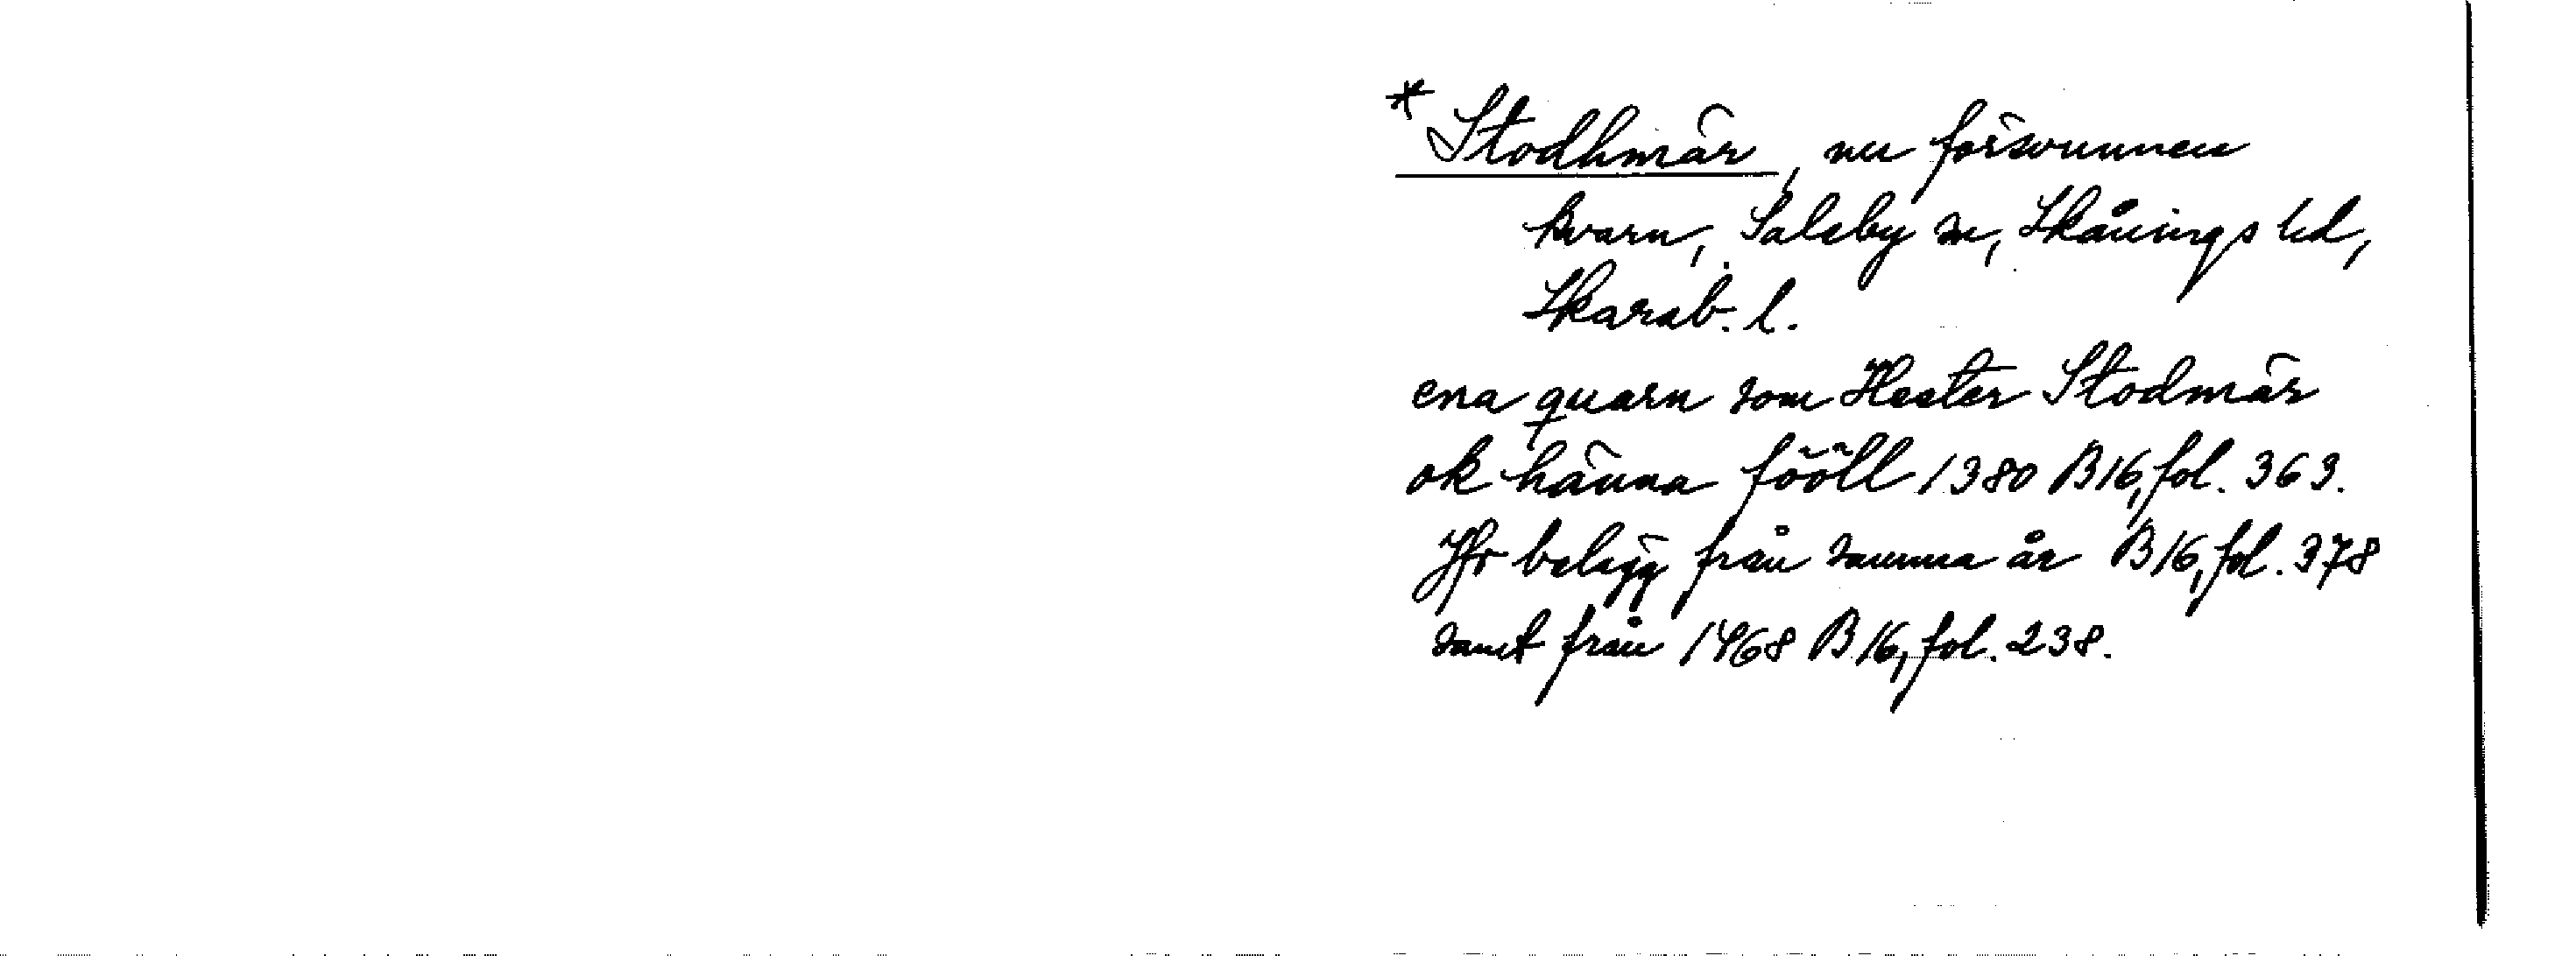 * Stodhmär, nu försvunnen
kvarn, Saleby sn, Skånings hd,
Skarab. l.
ena quarn som Hester Stodmär
ok hänna fööll 1380 B16, fol. 363.
Jfr belägg från samma år B16, fol. 378
samt från 1468 B16, fol. 238.